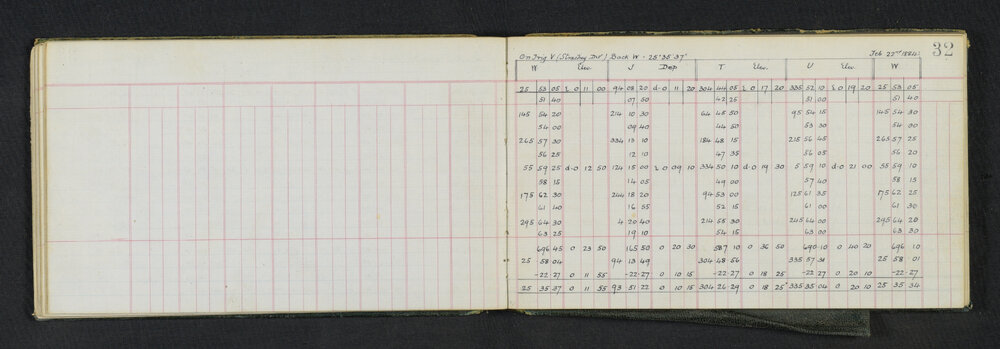 32
On Trig V (Standley Dist.) Back W - 25°35'37" Feb 22nd 1894
W Elev. J Dep T Elev. U Elev. W
25 53 05 0 11 00 94 08 20 d-0 11 20 304 44 05 0 17 20 335 52 10 0 19 20 25 53 05
51 40 07 50 42 25 51 00 51 40
145 54 20 214 10 30 64 45 50 95 54 15 145 54 30
54 00 09 40 44 50 53 30 54 00
265 57 30 334 13 10 184 48 15 215 56 45 265 57 25
56 25 12 10 47 35 56 05 56 20
55 59 25 d-0 12 50 124 15 00 0 09 10 334 50 10 d-0 19 30 5 59 10 d-0 21 00 55 59 10
58 15 14 05 49 00 57 40 58 15
175 62 30 244 18 20 94 53 00 125 61 35 175 62 25
61 40 16 55 52 15 61 00 61 30
295 64 30 4 20 40 214 55 30 245 64 00 295 64 20
63 25 19 10 54 15 63 00 63 30
696 45 0 23 50 165 50 0 20 30 587 10 0 36 50 690 10 0 40 20 696 10
25 58 04 94 13 49 304 48 56 335 57 31 25 58 01
-22 27 0 11 55 -22 27 0 10 15 -22 27 0 18 25 -22 27 0 20 10 -22 27
25 35 37 0 11 55 93 51 22 0 10 15 304 26 29 0 18 25 335 35 04 0 20 10 25 35 34